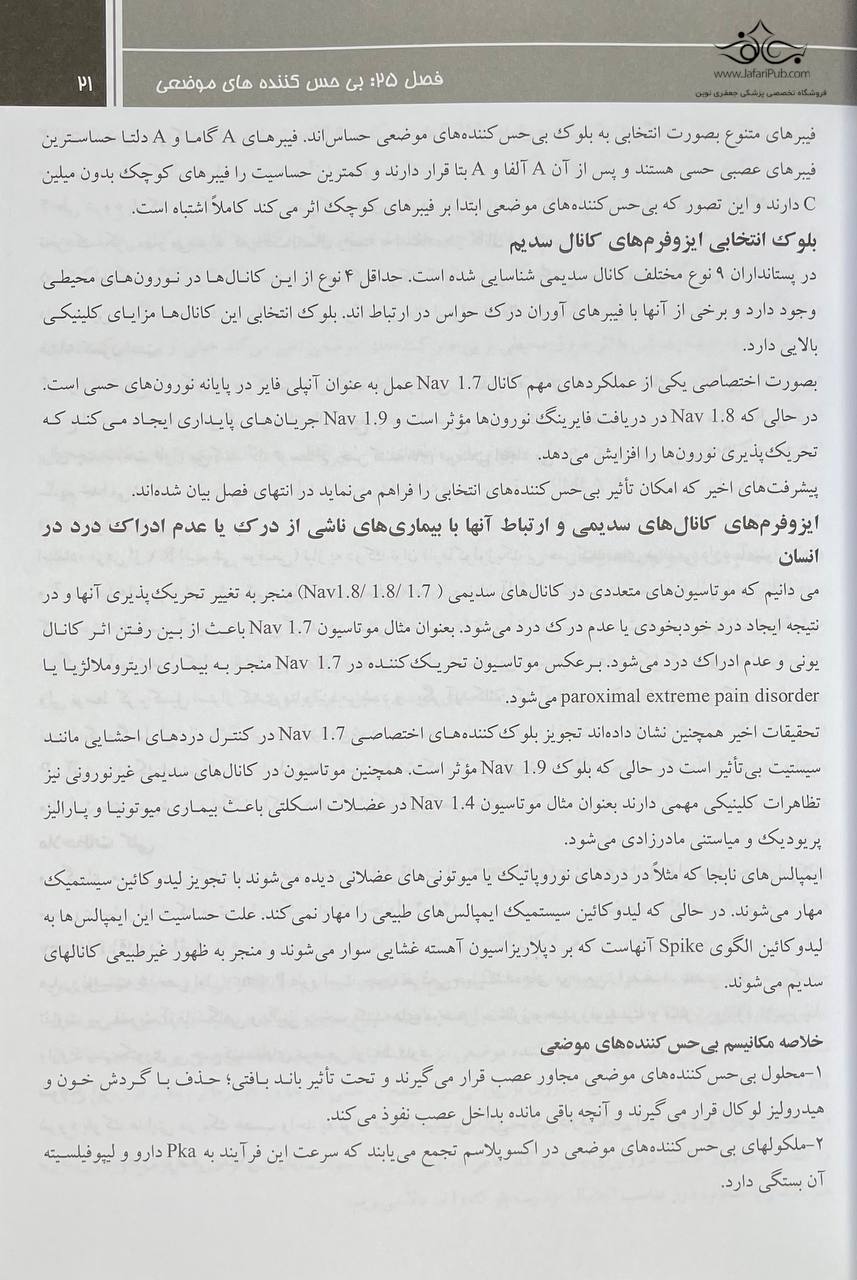 ۲۱
فصل ۲۵: بی حس کننده های موضعی
www.JafariPub.com
فروشگاه تخصصی پزشکی جعفری نوین
فیبرهای متنوع بصورت انتخابی به بلوک بی‌حس‌کننده‌های موضعی حساس‌اند. فیبرهای A گاما و A دلتا حساسترین
فیبرهای عصبی حسی هستند و پس از آن A آلفا و A بتا قرار دارند و کمترین حساسیت را فیبرهای کوچک بدون میلین
C دارند و این تصور که بی‌حس‌کننده‌های موضعی ابتدا بر فیبرهای کوچک اثر می‌کند کاملاً اشتباه است.
بلوک انتخابی ایزوفرم‌های کانال سدیم
در پستانداران ۹ نوع مختلف کانال سدیمی شناسایی شده است. حداقل ۴ نوع از این کانال‌ها در نورون‌های محیطی
وجود دارد و برخی از آنها با فیبرهای آوران درک حواس در ارتباط اند. بلوک انتخابی این کانال‌ها مزایای کلینیکی
بالایی دارد.
بصورت اختصاصی یکی از عملکردهای مهم کانال Nav 1.7 عمل به عنوان آنپلی فایر در پایانه نورون‌های حسی است.
در حالی که Nav 1.8 در دریافت فایرینگ نورون‌ها مؤثر است و Nav 1.9 جریان‌های پایداری ایجاد می‌کند که
تحریک‌پذیری نورون‌ها را افزایش می‌دهد.
پیشرفت‌های اخیر که امکان تأثیر بی‌حس‌کننده‌های انتخابی را فراهم می‌نماید در انتهای فصل بیان شده‌اند.
ایزوفرم‌های کانال‌های سدیمی و ارتباط آنها با بیماری‌های ناشی از درک یا عدم ادراک درد در
انسان
می دانیم که موتاسیون‌های متعددی در کانال‌های سدیمی ( Nav1.8/ 1.8/ 1.7) منجر به تغییر تحریک‌پذیری آنها و در
نتیجه ایجاد درد خودبخودی یا عدم درک درد می‌شود. بعنوان مثال موتاسیون Nav 1.7 باعث از بین رفتن اثر کانال
یونی و عدم ادراک درد می‌شود. برعکس موتاسیون تحریک‌کننده در Nav 1.7 منجر به بیماری اریتروملالژیا یا
paroximal extreme pain disorder می‌شود.
تحقیقات اخیر همچنین نشان داده‌اند تجویز بلوک‌کننده‌های اختصاصی Nav 1.7 در کنترل دردهای احشایی مانند
سیستیت بی‌تأثیر است در حالی که بلوک Nav 1.9 مؤثر است. همچنین موتاسیون در کانال‌های سدیمی غیرنورونی نیز
تظاهرات کلینیکی مهمی دارند بعنوان مثال موتاسیون Nav 1.4 در عضلات اسکلتی باعث بیماری میوتونیا و پارالیز
پریودیک و میاستنی مادرزادی می‌شود.
ایمپالس‌های نابجا که مثلاً در دردهای نوروپاتیک یا میوتونی‌های عضلانی دیده می‌شوند با تجویز لیدوکائین سیستمیک
مهار می‌شوند. در حالی که لیدوکائین سیستمیک ایمپالس‌های طبیعی را مهار نمی‌کند. علت حساسیت این ایمپالس‌ها به
لیدوکائین الگوی Spike آنهاست که بر دپلاریزاسیون آهسته غشایی سوار می‌شوند و منجر به ظهور غیرطبیعی کانالهای
سدیم می‌شوند.
خلاصه مکانیسم بی‌حس کننده‌های موضعی
۱-محلول بی‌حس‌کننده‌های موضعی مجاور عصب قرار می‌گیرند و تحت تأثیر باند بافتی؛ حذف با گردش خون و
هیدرولیز لوکال قرار می‌گیرند و آنچه باقی مانده بداخل عصب نفوذ می‌کند.
۲-ملکولهای بی‌حس‌کننده‌های موضعی در اکسوپلاسم تجمع می‌یابند که سرعت این فرآیند به Pka دارو و لیپوفلسیته
آن بستگی دارد.